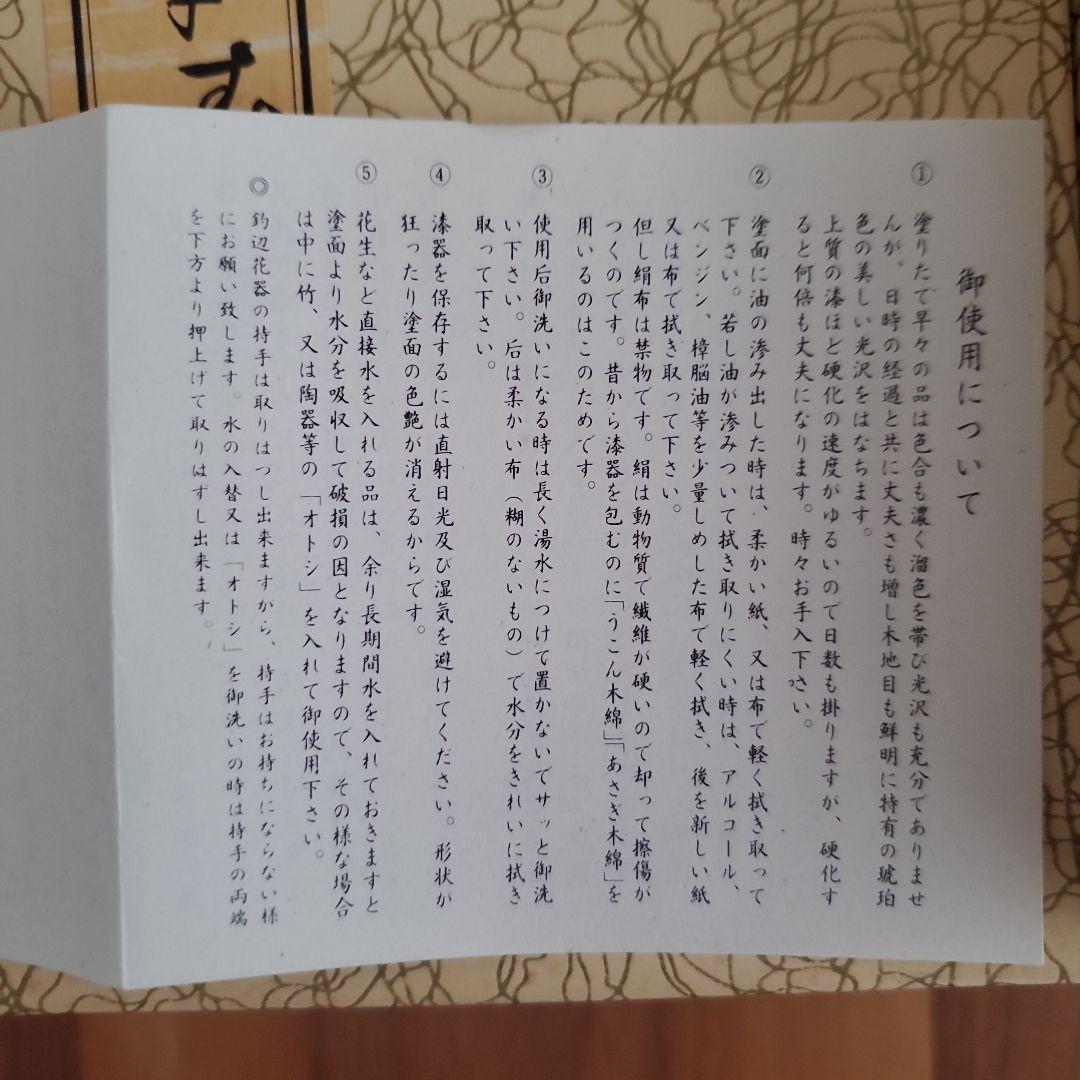 す
御使用について
① 塗りたて早々の品は色合も濃く溜色を帯び光沢も充分でありませ
んが、日時の経過と共に丈夫さも増し木地目も鮮明に特有の琥珀
色の美しい光沢をはなちます。
上質の漆ほど硬化の速度がゆるいので日数も掛りますが、硬化す
ると何倍も丈夫になります。時々お手入下さい。
② 塗面に油の滲み出した時は、柔かい紙、又は布で軽く拭き取って
下さい。若し油が滲みついて拭き取りにくい時は、アルコール、
ベンジン、樟脳油等を少量しめした布で軽く拭き、後を新しい紙
又は布で拭き取って下さい。
但し絹布は禁物です。絹は動物質で繊維が硬いので却って擦傷が
つくのです。昔から漆器を包むのに「うこん木綿」「あさぎ木綿」を
用いるのはこのためです。
③ 使用后御洗いになる時は長く湯水につけて置かないでサッと御洗
い下さい。后は柔かい布（糊のないもの）で水分をきれいに拭き
取って下さい。
④ 漆器を保存するには直射日光及び湿気を避けてください。形状が
狂ったり塗面の色艶が消えるからです。
⑤ 花生など直接水を入れる品は、余り長期間水を入れておきますと
塗面より水分を吸収して破損の因となりますので、その様な場合
は中に竹、又は陶器等の「オトシ」を入れて御使用下さい。
◎ 釣辺花器の持手は取りはつし出来ますから、持手はお持ちにならない様
にお願い致します。水の入替又は「オトシ」を御洗いの時は持手の両端
を下方より押上げて取りはずし出来ます。